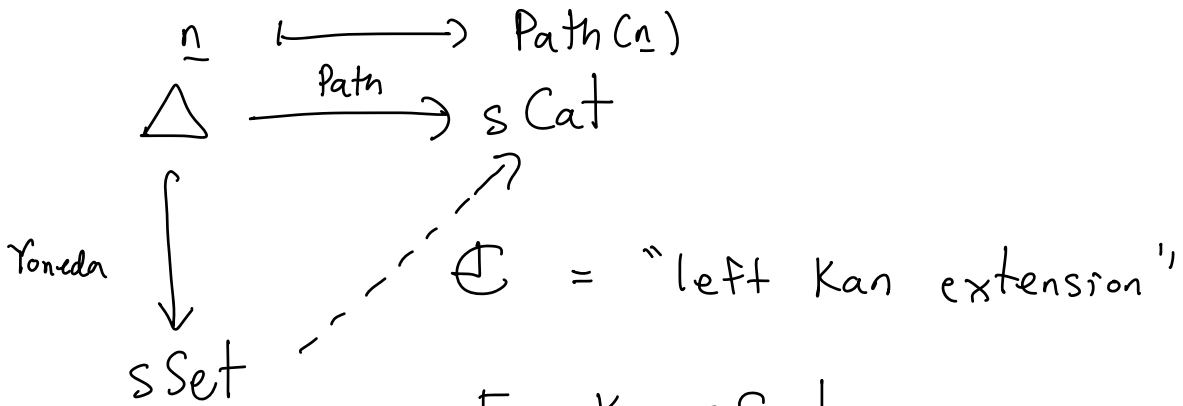 n ⟼ Path(n)
Path
Δ → sCat
Yoneda
ℭ = "left Kan extension"
sSet